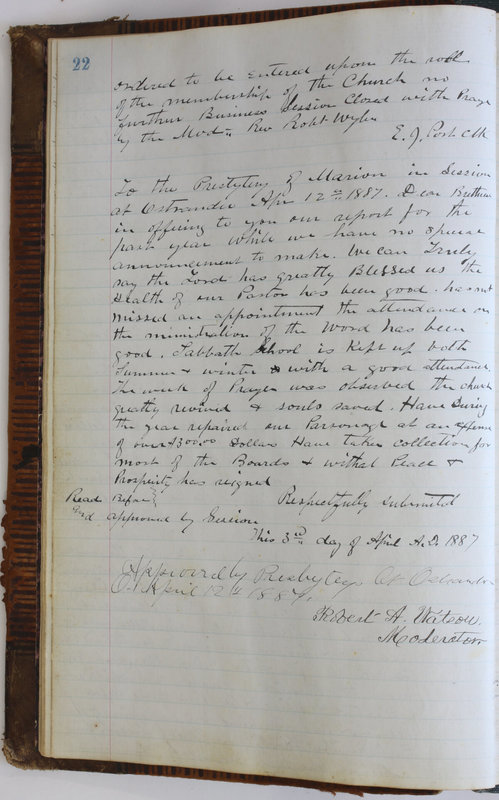 22
ordered to be entered upon the roll
of the membership of the Church no
further Business Session Closed with Prayer
by the Modr Rev Robt Wylie
E. J. Post Clk
To the Presbytery of Marion in Session
at Ostrander Apr 12th 1887. Dear Brethren
in offering to you our report for the
past year while we have no special
announcement to make. We can Truly
say the Lord has greatly Blessed us The
Health of our Pastor has been good. has not
missed an appointment the attendance on
the ministration of the Word has been
good. Sabbath School is Kept up both
Summer & winter & with a good attendance.
The week of Prayer was observed the church
greatly revived & souls saved. Have During
the year repaired our Parsonage at an expense
of over $300.00 Dollars Have taken collection for
most of the Boards & withal Peace &
Prosperity has reigned
Read Before Respectfully Submitted
and approved by Session
This 3rd day of April A.D. 1887
Approved by Presbytery at Ostrander
April 12th 1887.
Robert A. Watson.
Moderator